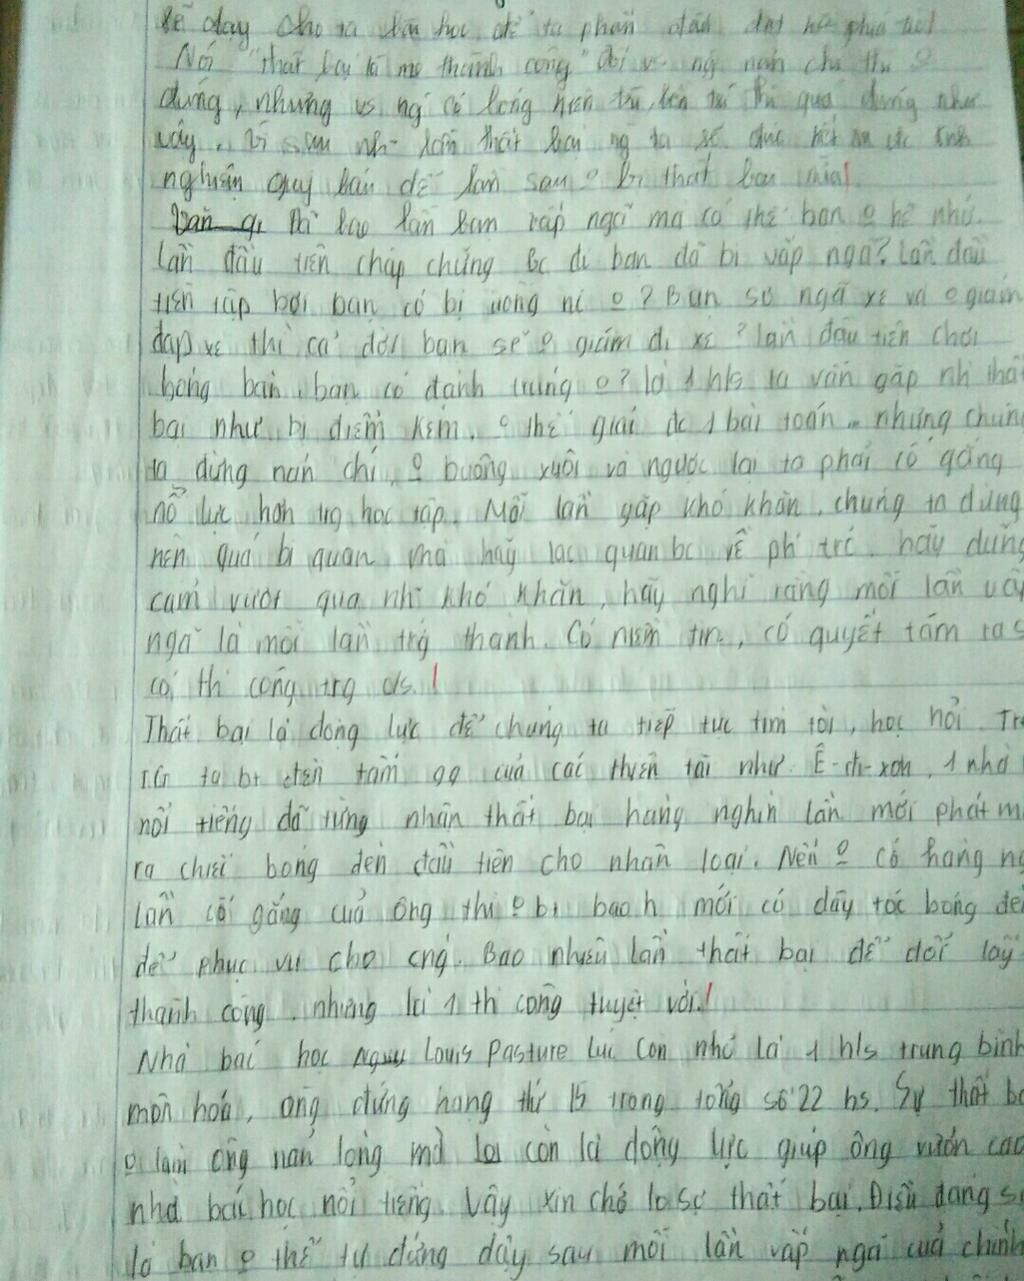 sẽ dạy cho ta bài học để ta phấn đấu
Nói "thất bại là mẹ thành công" đối vs ng nản chí thì o
đúng, nhưng vs ng có lòng kiên trì, bền trí thì quá đúng như
vậy. Vì sau nh~ lần thất bại ng ta sẽ đúc kết
nghiệm quý báu để lần sau o bị thất bại nữa!
Đã bao lần bạn vấp ngã mà có thể bạn o hề nhớ.
Lần đầu tiên chập chững bc đi bạn đã bị vấp ngã? Lần đầu
tiên tập bơi bạn có bị uống nc o? Bạn sợ ngã xe và o giám
đạp xe thì cả đời bạn sẽ o giám đi xe? Lần đầu tiên chơi
bóng bàn, bạn có đánh trúng o? Là 1 hls ta vẫn gặp nh thất
bại như bị điểm kém, o thể giải đc 1 bài toán.. nhưng chúng
ta đừng nản chí, o buông xuôi và ngược lại ta phải cố gắng
nỗ lực hơn trg học tập. Mỗi lần gặp khó khăn, chúng ta đừng
nên quá bi quan, mà hãy lạc quan bc về ph trc, hãy dũng
cảm vượt qua nh~ khó khăn, hãy nghĩ rằng mỗi lần vấp
ngã là mỗi lần trg thành. Có niềm tin, có quyết tâm ta s
có th công trg c/s.!
Thất bại là động lực để chúng ta tiếp tục tìm tòi, học hỏi. Tr
TG ta bt đến tấm gg của các thiên tài như Ê-đi-xơn, 1 nhà
nổi tiếng đã từng nhận thất bại hàng nghìn lần mới phát m
ra chiếc bóng đèn đầu tiên cho nhân loại. Nếu o có hàng ng
lần cố gắng của ông thì o bt bao h mới có dây tóc bóng đè
để phục vụ cho cng. Bao nhiêu lần thất bại để đổi lấy
thành công, nhưng là 1 th công tuyệt vời.!
Nhà bác học Louis Pasture lúc còn nhỏ là 1 hls trung bình
môn hóa, ông đứng hạng thứ 15 trong tổng số 22 hs. Sự thất bạ
o làm ông nản lòng mà lại còn là động lực giúp ông vươn cao
nhà bác học nổi tiếng. Vậy xin chớ lo sợ thất bại. Điều đáng s
là bạn o thể tự đứng dậy sau mỗi lần vấp ngã của chính